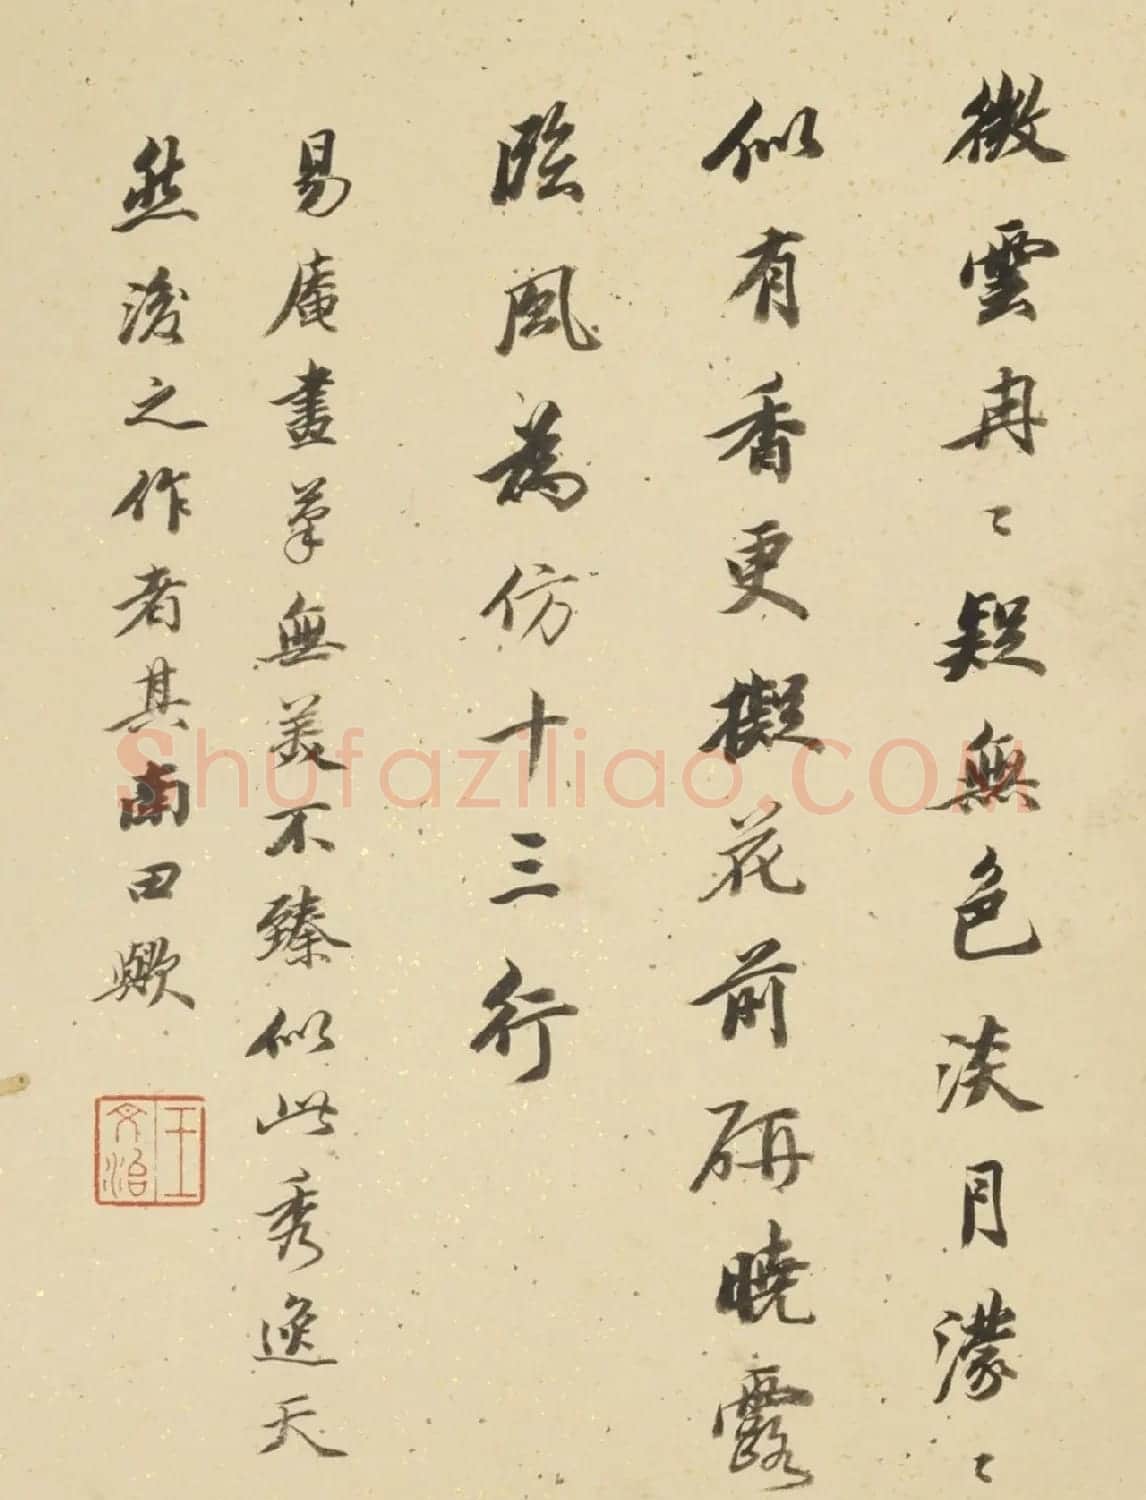 微雲冉〻疑無色淡月濛〻
似有香更擬花前研曉露
臨風爲仿十三行
易庵畫筆無美不臻似此秀逸天
然後之作者其南田歟
王文治
Shufaziliao.COM